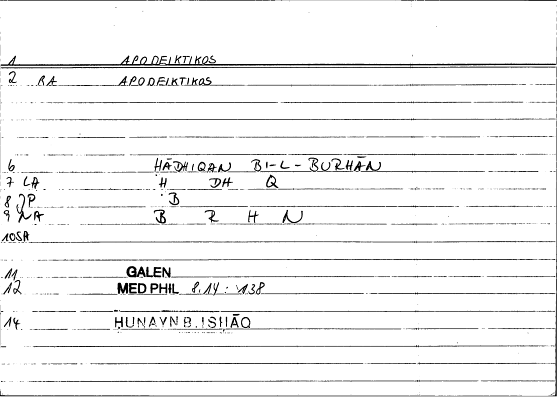 1 APODEIKTIKOS
2 RA APODEIKTIKOS
6 HĀDHIQAN BI-L-BURHĀN
7 LA H DH Q
8 JP B
9 NA B R H N
10SA
11 GALEN
12 MED PHIL 8.14 : 138
14 HUNAYN B. ISHĀQ